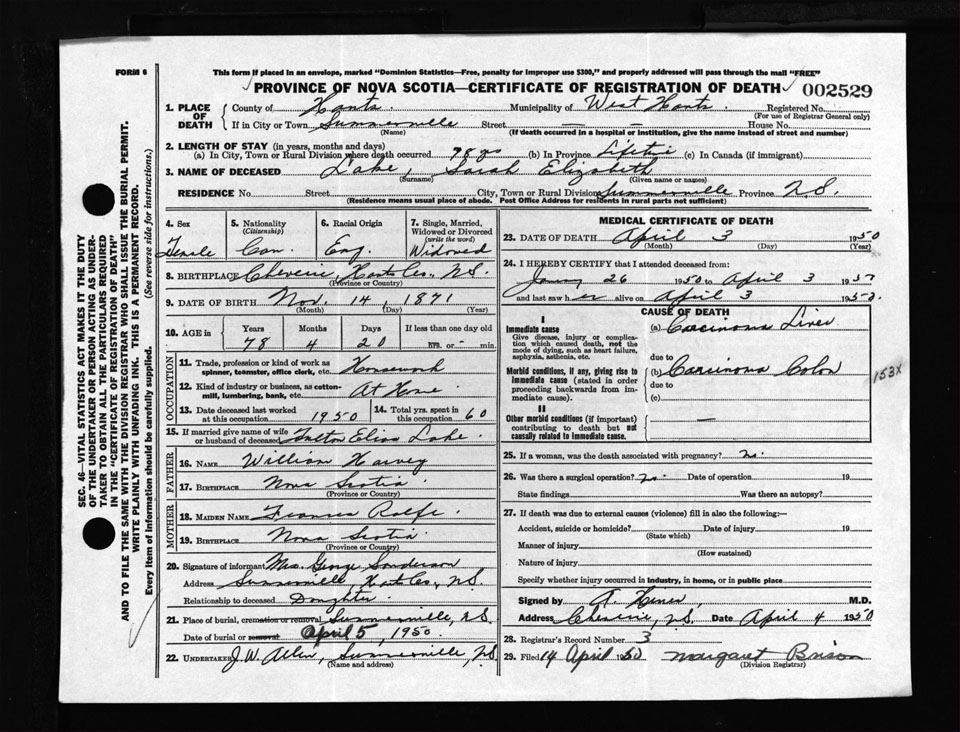 FORM 6
This form if placed in an envelope, marked "Dominion Statistics—Free, penalty for improper use $300," and properly addressed will pass through the mail "FREE"
PROVINCE OF NOVA SCOTIA—CERTIFICATE OF REGISTRATION OF DEATH 002529
1. PLACE OF DEATH County of Hants. Municipality of West Hants. Registered No.
(For use of Registrar General only)
If in City or Town Summerville Street — — House No.
(Name) (If death occurred in a hospital or institution, give the name instead of street and number)
2. LENGTH OF STAY (in years, months and days)
(a) In City, Town or Rural Division where death occurred 78 yrs (b) In Province Lifetime (c) In Canada (if immigrant)
3. NAME OF DECEASED Lake, Sarah Elizabeth
(Surname) (Given name or names)
RESIDENCE No. Street City, Town or Rural Division Summerville Province N.S.
(Residence means usual place of abode. Post Office Address for residents in rural parts not sufficient)
4. Sex 5. Nationality (Citizenship) 6. Racial Origin 7. Single, Married, Widowed or Divorced (write the word)
Female Can Eng. Widowed
8. BIRTHPLACE Cheverie, Hants Co., N.S.
(Province or Country)
9. DATE OF BIRTH Nov. 14, 1871
(Month) (Day) (Year)
10. AGE in Years Months Days If less than one day old
78 4 20 hrs. or — min.
OCCUPATION
11. Trade, profession or kind of work as spinner, teamster, office clerk, etc. Housework
12. Kind of industry or business, as cotton-mill, lumbering, bank, etc. At Home
13. Date deceased last worked at this occupation 1950 14. Total yrs. spent in this occupation 60
15. If married give name of wife or husband of deceased Fulton Elias Lake.
FATHER
16. NAME William Harvey
17. BIRTHPLACE Nova Scotia
(Province or Country)
MOTHER
18. MAIDEN NAME Frances Rolfe.
19. BIRTHPLACE Nova Scotia
(Province or Country)
20. Signature of informant Mrs. George Sanderson
Address Summerville, Hants Co., N.S.
Relationship to deceased Daughter.
21. Place of burial, cremation or removal Summerville, N.S.
Date of burial or removal April 5, 1950.
22. UNDERTAKER J. W. Allen, Summerville, N.S.
(Name and address)
MEDICAL CERTIFICATE OF DEATH
23. DATE OF DEATH April 3 1950
(Month) (Day) (Year)
24. I HEREBY CERTIFY that I attended deceased from:
January 26 1950 to April 3 1950
and last saw her alive on April 3 1950.
CAUSE OF DEATH
I
Immediate cause (a) Carcinoma Liver
Give disease, injury or complication which caused death, not the mode of dying, such as heart failure, asphyxia, asthenia, etc.
due to
Morbid conditions, if any, giving rise to immediate cause (stated in order proceeding backwards from immediate cause). (b) Carcinoma Colon 153X
due to
(c)
II
Other morbid conditions (if important) contributing to death but not causally related to immediate cause. —
25. If a woman, was the death associated with pregnancy? no.
26. Was there a surgical operation? no. Date of operation 19
State findings Was there an autopsy?
27. If death was due to external causes (violence) fill in also the following:—
Accident, suicide or homicide? Date of injury 19
(State which)
Manner of injury
(How sustained)
Nature of injury
Specify whether injury occurred in industry, in home, or in public place
Signed by M.D.
Address Cheverie, N.S. Date April 4 1950
28. Registrar's Record Number 3
29. Filed 14 April 1950 Margaret Brison
(Division Registrar)
SEC. 46—VITAL STATISTICS ACT MAKES IT THE DUTY
OF THE UNDERTAKER OR PERSON ACTING AS UNDER-
TAKER TO OBTAIN ALL THE PARTICULARS REQUIRED
IN THE "CERTIFICATE OF REGISTRATION OF DEATH"
AND TO FILE THE SAME WITH THE DIVISION REGISTRAR WHO SHALL ISSUE THE BURIAL PERMIT.
WRITE PLAINLY WITH UNFADING INK. THIS IS A PERMANENT RECORD.
Every item of information should be carefully supplied. (See reverse side for instructions.)